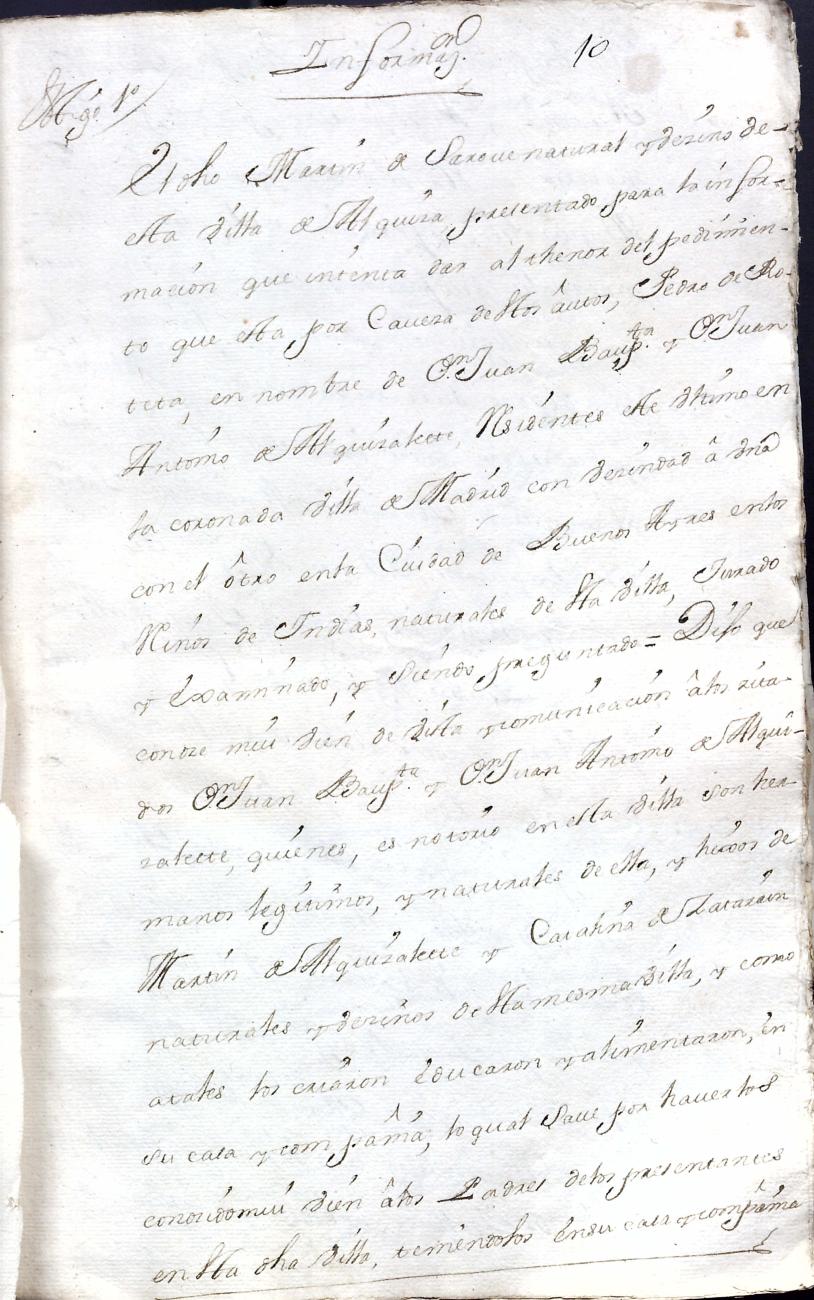 Informaⁿ.
10
Ttigo. 1º
El dho Martin de Sarove natural y vezino de-
esta villa de Alquiza, presentado para la infor-
macion que intenta dar al thenor del pedimien-
to que esta por Caveza destos autos, Pedro de Ro-
teta, en nombre de Dn. Juan Baupta. y Dn. Juan
Antonio de Alquizalete, Residentes este vltimo en
la coronada villa de Madrid con vezindad â vna
con el ôtro en la Ciudad de Buenos Ayres en los
Reinos de Indias, naturales de sta villa, Jurado
y Examinado, y siendo preguntado = Dijo que
conoze mui vien de vista y comunicacion âlos cita-
dos Dn. Juan Baupta. y Dn. Juan Antonio de Alqui-
zalette, quienes, es notorio en esta villa son her-
manos legitimos, y naturales de ella, y hixos de
Martin de Alquizalette y Catalina de Zatarain
naturales y vezinos de sta mesma villa, y como
atales los criaron Educaron y alimentaron, en
su casa y compâñia, lo qual save por haverlos
conosido mui vien âlos Padres delos presentantes
en sta dha villa, teniendolos En su casa y compâñia